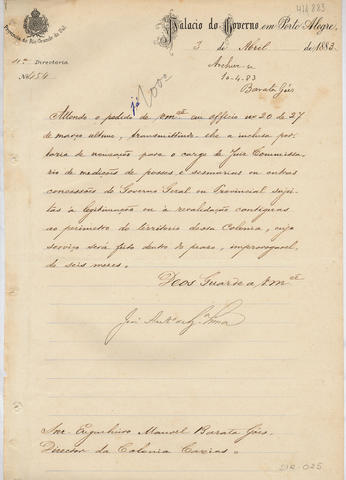 414883
Palacio do Governo em Porto Alegre,
Provincia do Rio Grande do Sul
3 de Abril de 1883.
11ª Directoria
Nº 454
Archive-se
10-4-83
Barata Góes
já
Attendo o pedido de Vmcê em officio nº 20 de 27
de março ultimo, transmittindo-lhe a inclusa por-
taria de nomeação para o cargo de Juiz Commissa-
rio de medições de posses e sesmarias ou outras
concessões do Governo Geral ou Provincial sujei-
tas á legitimação ou á revalidação contiguas
ao perimetro do territorio dessa Colonia, cujo
serviço será feito dentro do praso, improrogavel,
de seis meses.
Deos Guarde a Vmcê
José Antº de Sª Lima
Snr. Engenheiro Manoel Barata Góes.
Director da Colonia Caxias.
DIR-025